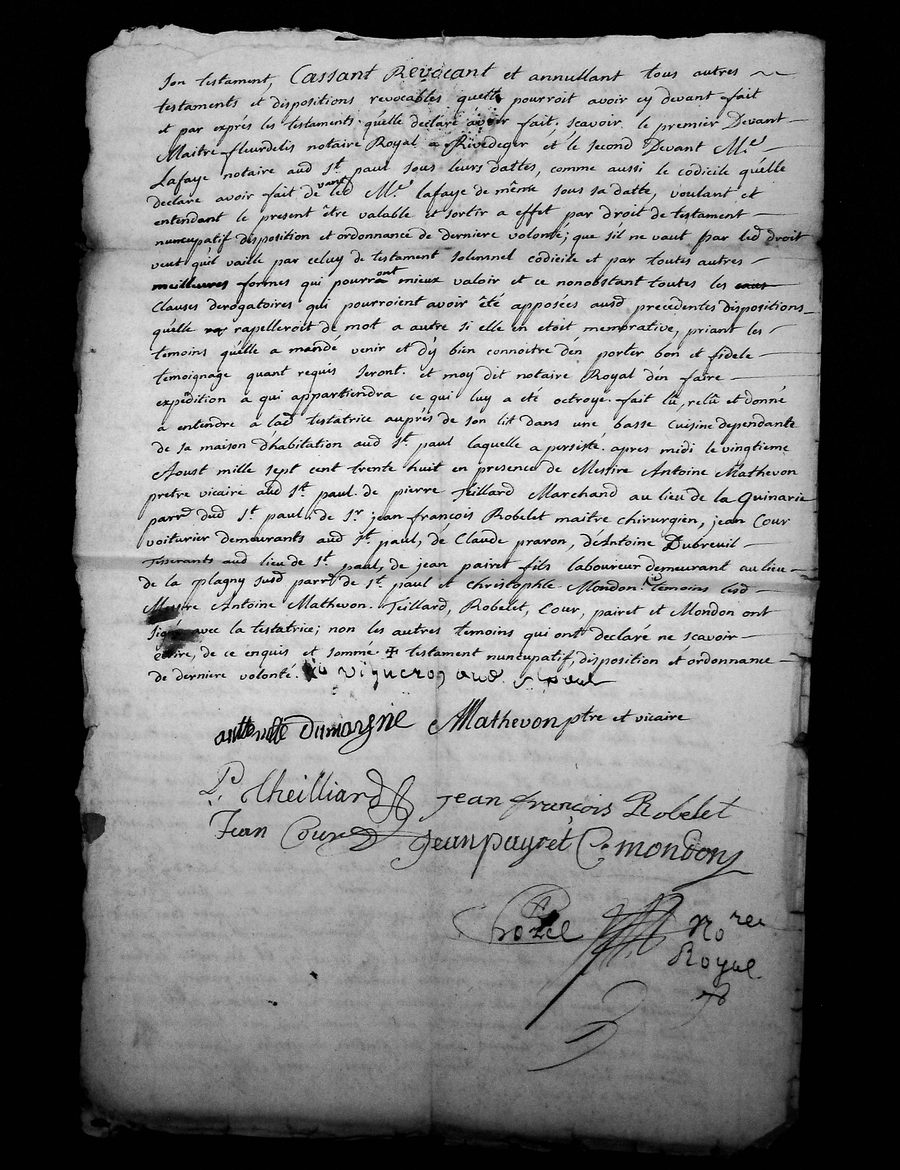 Son testament, Cassant Revocant et annullant tous autres
testaments et dispositions revocables quelle pourroit avoir cy devant fait
et par exprés les testaments quélle declare avoir fait, scavoir le premier Devant
Maitre fleurdelis notaire Royal a Rivedegier et le second Devant Me.
Lafaye notaire aud St. paul sous leurs dattes, comme aussi le codicile quélle
declare avoir fait devant led Me. lafaye de même sous sa datte, voulant et
entendant le present être valable et sortir a effet par droit de testament
nuncupatif disposition et ordonnance de derniere volonté; que s'il ne vaut par led droit
veut qu'il vaille par celuy de testament solemnel codicile et par toutes autres
meilleures formes qui pourront mieux valoir et ce nonobstant toutes les
Clauses derogatoires qui pourroient avoir été apposées ausd precedentes dispositions
quélle rapelleroit de mot a autre si elle en etoit memorative, priant les
temoins quélle a mandé venir et d'y bien connoitre d'en porter bon et fidele
temoignage quant requis seront. et moy dit notaire Royal d'en faire
expédition a qui appartiendra ce qui luy a été octroyé. fait lû, relû et donné
a entendre a lad testatrice auprés de son lit dans une basse Cuisine dependante
de sa maison d'habitation aud St. paul laquelle a persisté. apres midi le vingtieme
Aoust mille sept cent trente huit en presence de Messire Antoine Mathevon
pretre vicaire aud St. paul. de pierre Teillard Marchand au lieu de la Quinarie
parrs dud St. paul. de Sr. jean françois Robelet maitre chirurgien, jean Cour
voiturier demeurants aud St. paul, de Claude praron, d'Antoine Dubreuil
Tisserants aud lieu de St. paul, de jean pairet fils laboureur demeurant au lieu
de la plagny susd parrs de St paul et christophle Mondon. temoins lesd
Messire Antoine Mathevon. Teillard, Robelet, Cour, pairet et Mondon ont
signé avec la testatrice; non les autres temoins qui ont declaré ne scavoir
écrire, de ce enquis et sommé testament nuncupatif, disposition et ordonnance
de derniere volonté. vigneron aud St paul
Dumaryne AMathevon ptre et vicaire
P. theilliard jean françois Robelet
Jean Cour Jean payret C. mondon
Chozel Noree
Royal